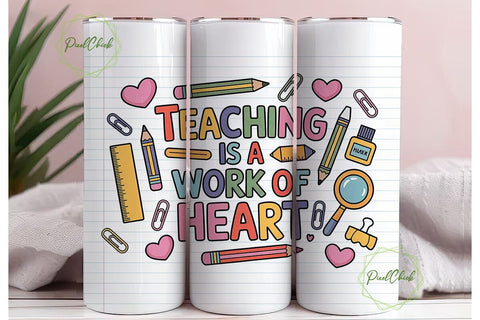 PixelChick
TEACHING
IS A
WORK OF
HEART!
PixelChick